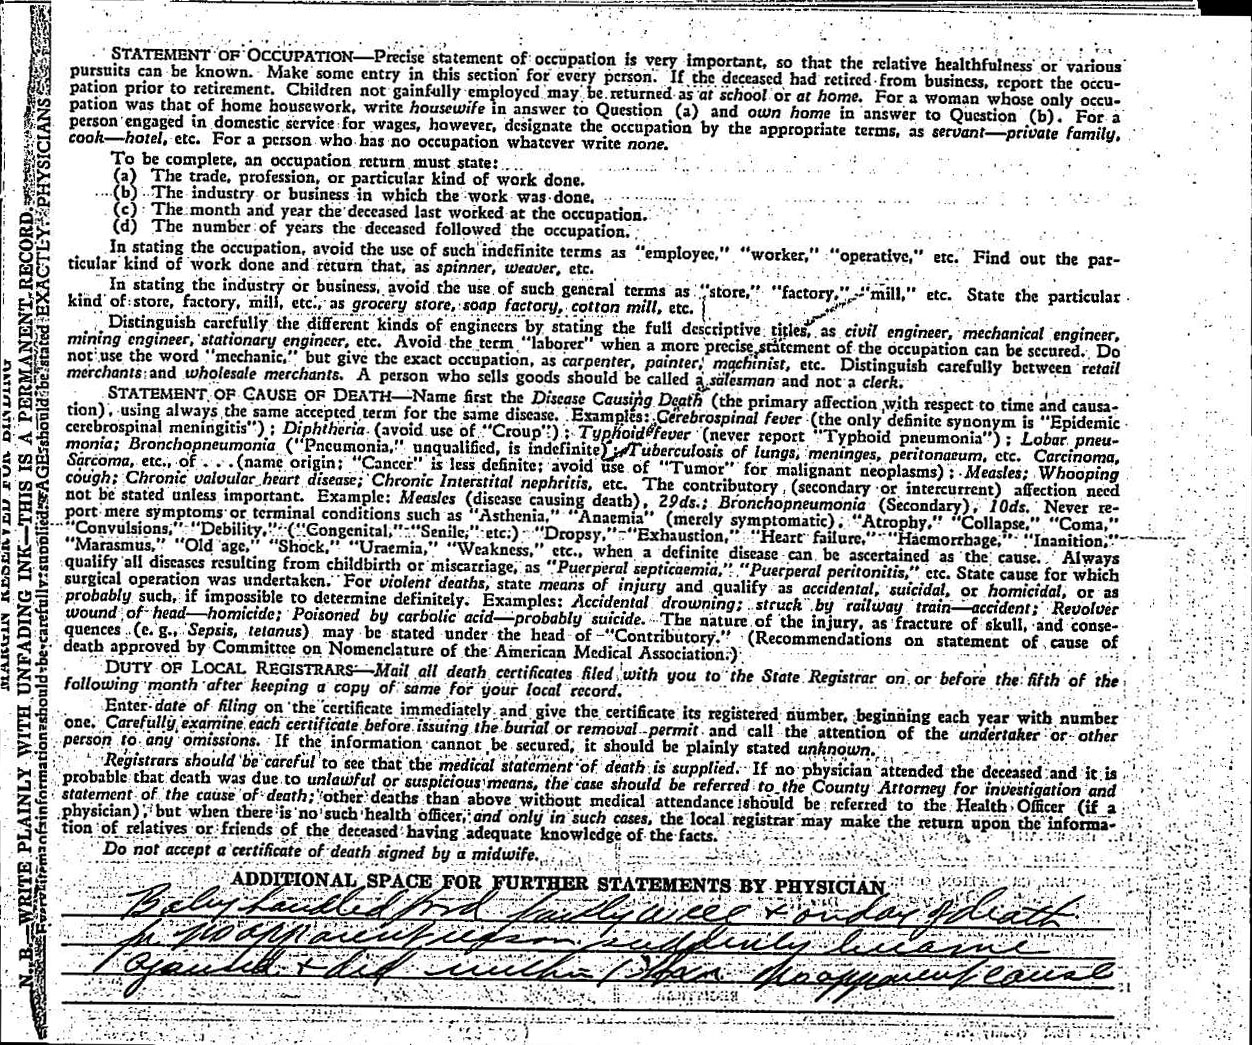 MARGIN RESERVED FOR BINDING
N. B.—WRITE PLAINLY WITH UNFADING INK—THIS IS A PERMANENT RECORD.
Every item of information should be carefully supplied. AGE should be stated EXACTLY. PHYSICIANS
STATEMENT OF OCCUPATION—Precise statement of occupation is very important, so that the relative healthfulness or various
pursuits can be known. Make some entry in this section for every person. If the deceased had retired from business, report the occu-
pation prior to retirement. Children not gainfully employed may be returned as at school or at home. For a woman whose only occu-
pation was that of home housework, write housewife in answer to Question (a) and own home in answer to Question (b). For a
person engaged in domestic service for wages, however, designate the occupation by the appropriate terms, as servant—private family,
cook—hotel, etc. For a person who has no occupation whatever write none.
To be complete, an occupation return must state:
(a) The trade, profession, or particular kind of work done.
(b) The industry or business in which the work was done.
(c) The month and year the deceased last worked at the occupation.
(d) The number of years the deceased followed the occupation.
In stating the occupation, avoid the use of such indefinite terms as "employee," "worker," "operative," etc. Find out the par-
ticular kind of work done and return that, as spinner, weaver, etc.
In stating the industry or business, avoid the use of such general terms as "store," "factory," "mill," etc. State the particular
kind of store, factory, mill, etc., as grocery store, soap factory, cotton mill, etc.
Distinguish carefully the different kinds of engineers by stating the full descriptive titles, as civil engineer, mechanical engineer,
mining engineer, stationary engineer, etc. Avoid the term "laborer" when a more precise statement of the occupation can be secured. Do
not use the word "mechanic," but give the exact occupation, as carpenter, painter, machinist, etc. Distinguish carefully between retail
merchants and wholesale merchants. A person who sells goods should be called a salesman and not a clerk.
STATEMENT OF CAUSE OF DEATH—Name first the Disease Causing Death (the primary affection with respect to time and causa-
tion), using always the same accepted term for the same disease. Examples: Cerebrospinal fever (the only definite synonym is "Epidemic
cerebrospinal meningitis"); Diphtheria (avoid use of "Croup"); Typhoid fever (never report "Typhoid pneumonia"); Lobar pneu-
monia; Bronchopneumonia ("Pneumonia," unqualified, is indefinite); Tuberculosis of lungs, meninges, peritonaeum, etc. Carcinoma,
Sarcoma, etc., of . . . (name origin; "Cancer" is less definite; avoid use of "Tumor" for malignant neoplasms); Measles; Whooping
cough; Chronic valvular heart disease; Chronic Interstital nephritis, etc. The contributory (secondary or intercurrent) affection need
not be stated unless important. Example: Measles (disease causing death), 29ds.; Bronchopneumonia (Secondary), 10ds. Never re-
port mere symptoms or terminal conditions such as "Asthenia," "Anaemia" (merely symptomatic), "Atrophy," "Collapse," "Coma,"
"Convulsions," "Debility," ("Congenital," "Senile," etc.) "Dropsy," "Exhaustion," "Heart failure," "Haemorrhage," "Inanition,"
"Marasmus," "Old age," "Shock," "Uraemia," "Weakness," etc., when a definite disease can be ascertained as the cause. Always
qualify all diseases resulting from childbirth or miscarriage, as "Puerperal septicaemia," "Puerperal peritonitis," etc. State cause for which
surgical operation was undertaken. For violent deaths, state means of injury and qualify as accidental, suicidal, or homicidal, or as
probably such, if impossible to determine definitely. Examples: Accidental drowning; struck by railway train—accident; Revolver
wound of head—homicide; Poisoned by carbolic acid—probably suicide. The nature of the injury, as fracture of skull, and conse-
quences (e. g., Sepsis, tetanus) may be stated under the head of "Contributory." (Recommendations on statement of cause of
death approved by Committee on Nomenclature of the American Medical Association.)
DUTY OF LOCAL REGISTRARS—Mail all death certificates filed with you to the State Registrar on or before the fifth of the
following month after keeping a copy of same for your local record.
Enter date of filing on the certificate immediately and give the certificate its registered number, beginning each year with number
one. Carefully examine each certificate before issuing the burial or removal permit and call the attention of the undertaker or other
person to any omissions. If the information cannot be secured, it should be plainly stated unknown.
Registrars should be careful to see that the medical statement of death is supplied. If no physician attended the deceased and it is
probable that death was due to unlawful or suspicious means, the case should be referred to the County Attorney for investigation and
statement of the cause of death; other deaths than above without medical attendance should be referred to the Health Officer (if a
physician), but when there is no such health officer, and only in such cases, the local registrar may make the return upon the informa-
tion of relatives or friends of the deceased having adequate knowledge of the facts.
Do not accept a certificate of death signed by a midwife.
ADDITIONAL SPACE FOR FURTHER STATEMENTS BY PHYSICIAN
Baby handled food fairly well & on day of death
for no apparent reason suddenly became
cyanotic & died within 1 hour no apparent cause